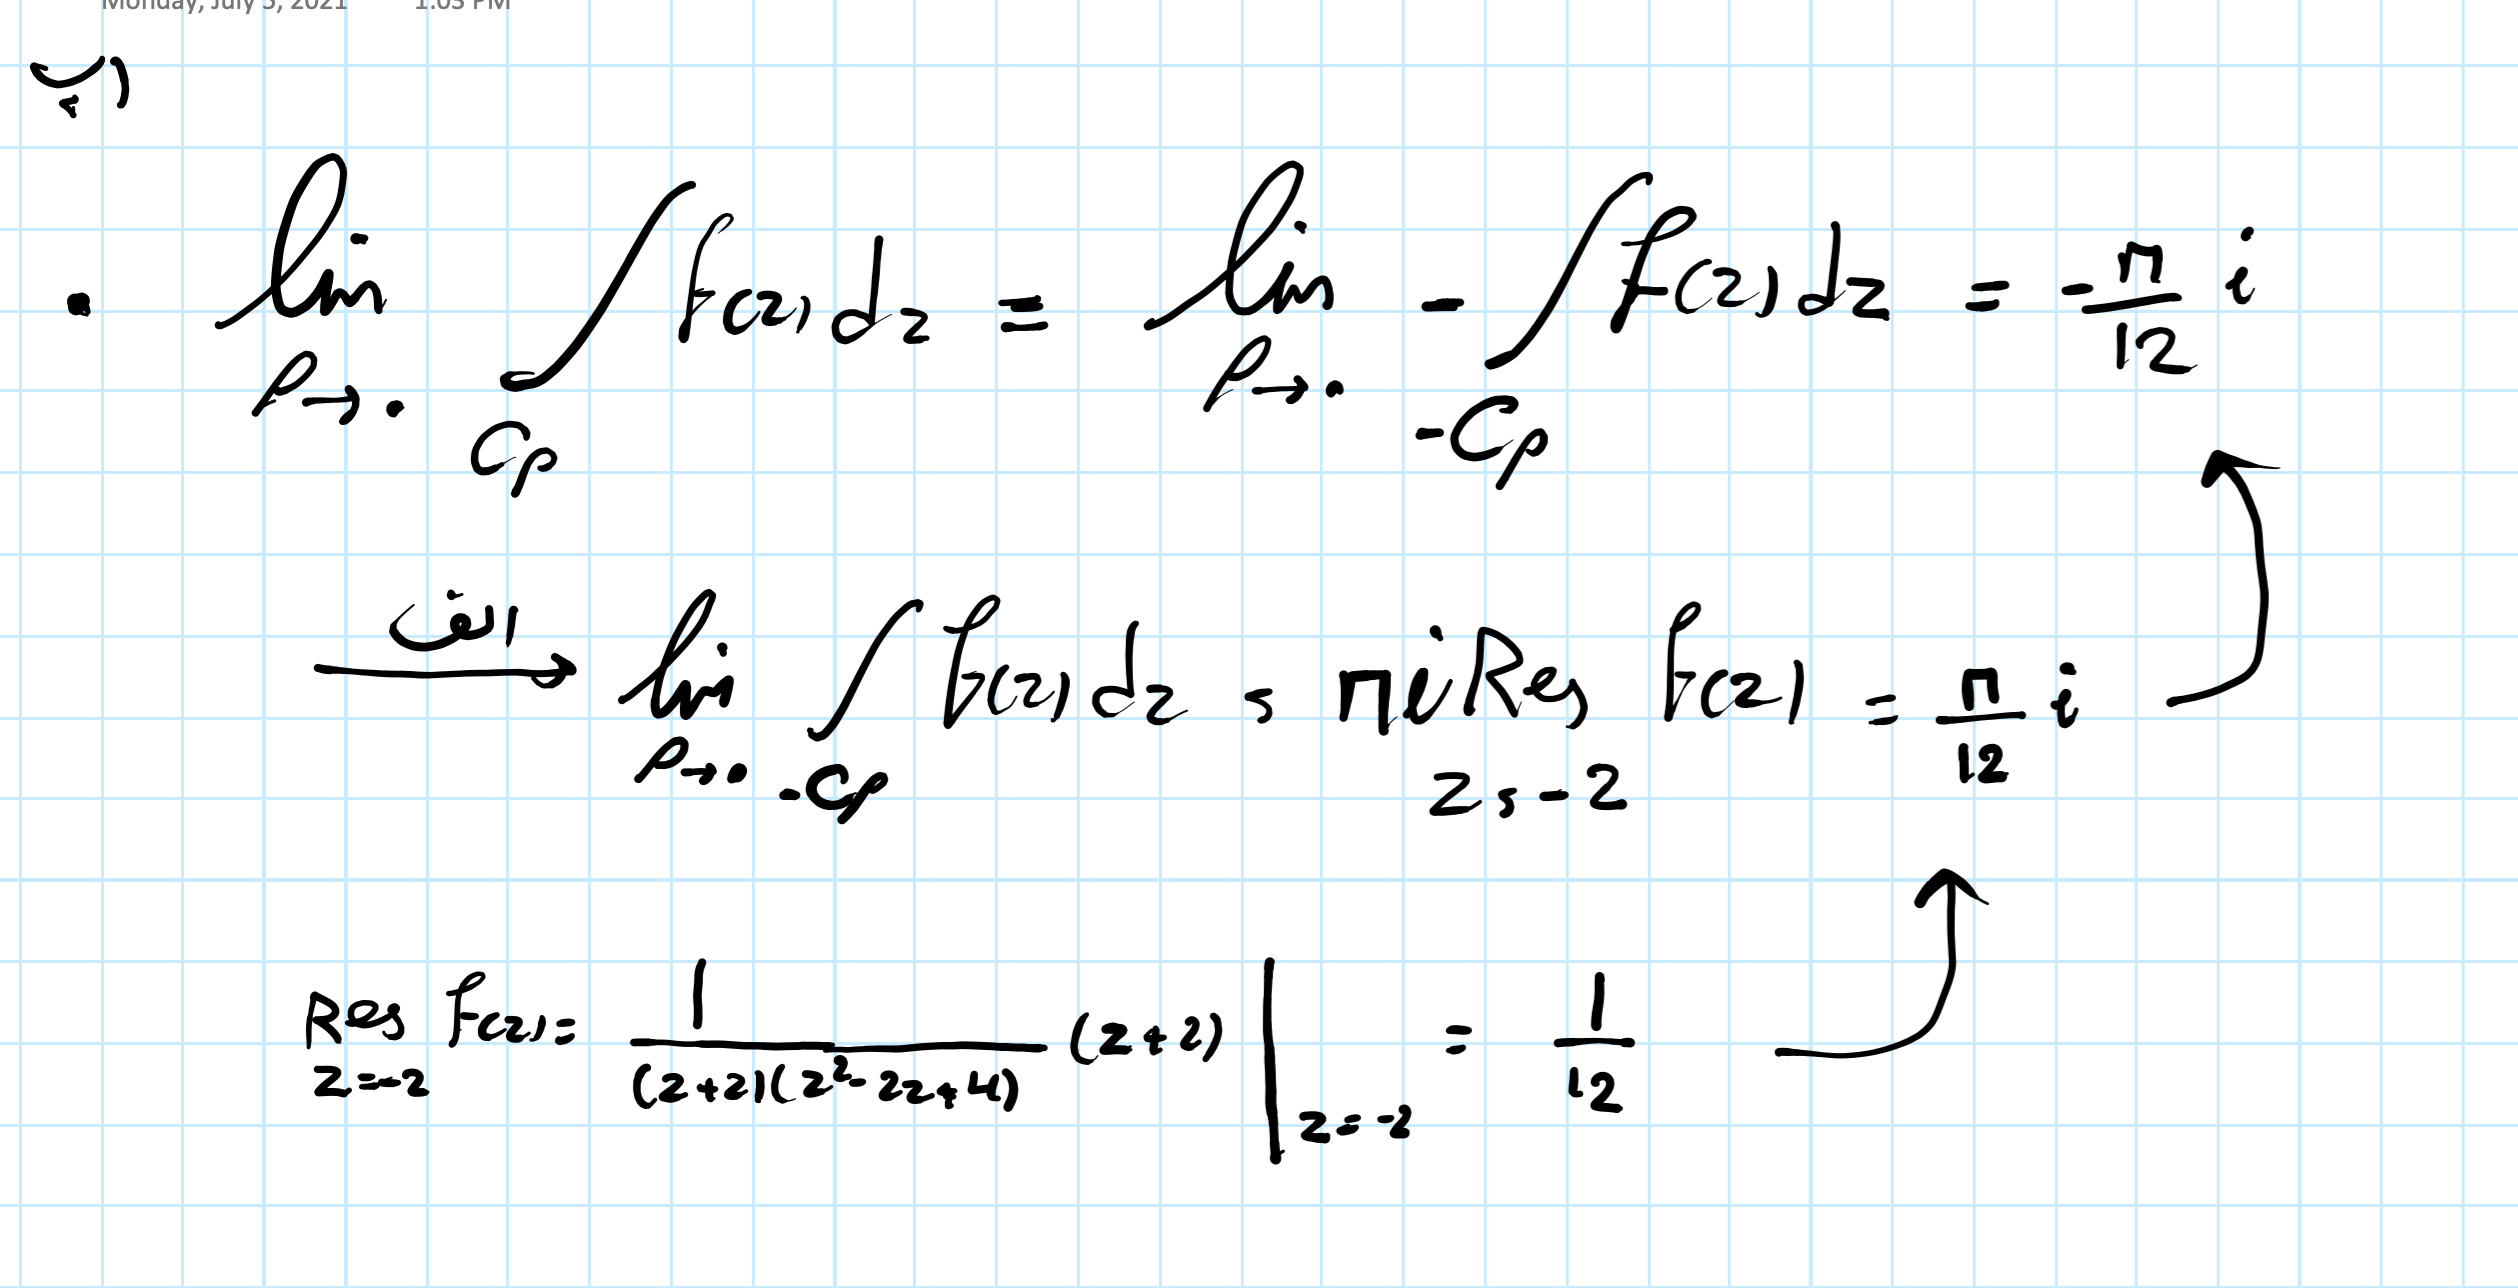 Monday, July 5, 2021 1:03 PM
ب)
• lim ρ→0 ∫_{Cρ} f(z) dz = lim ρ→0 - ∫_{-Cρ} f(z) dz = - π/12 i
الف → lim ρ→0 ∫_{-Cρ} f(z) dz = πi Res z=-2 f(z) = π/12 i
Res z=-2 f(z) = 1/((z+2)(z²-2z+4)) (z+2) |z=-2 = 1/12